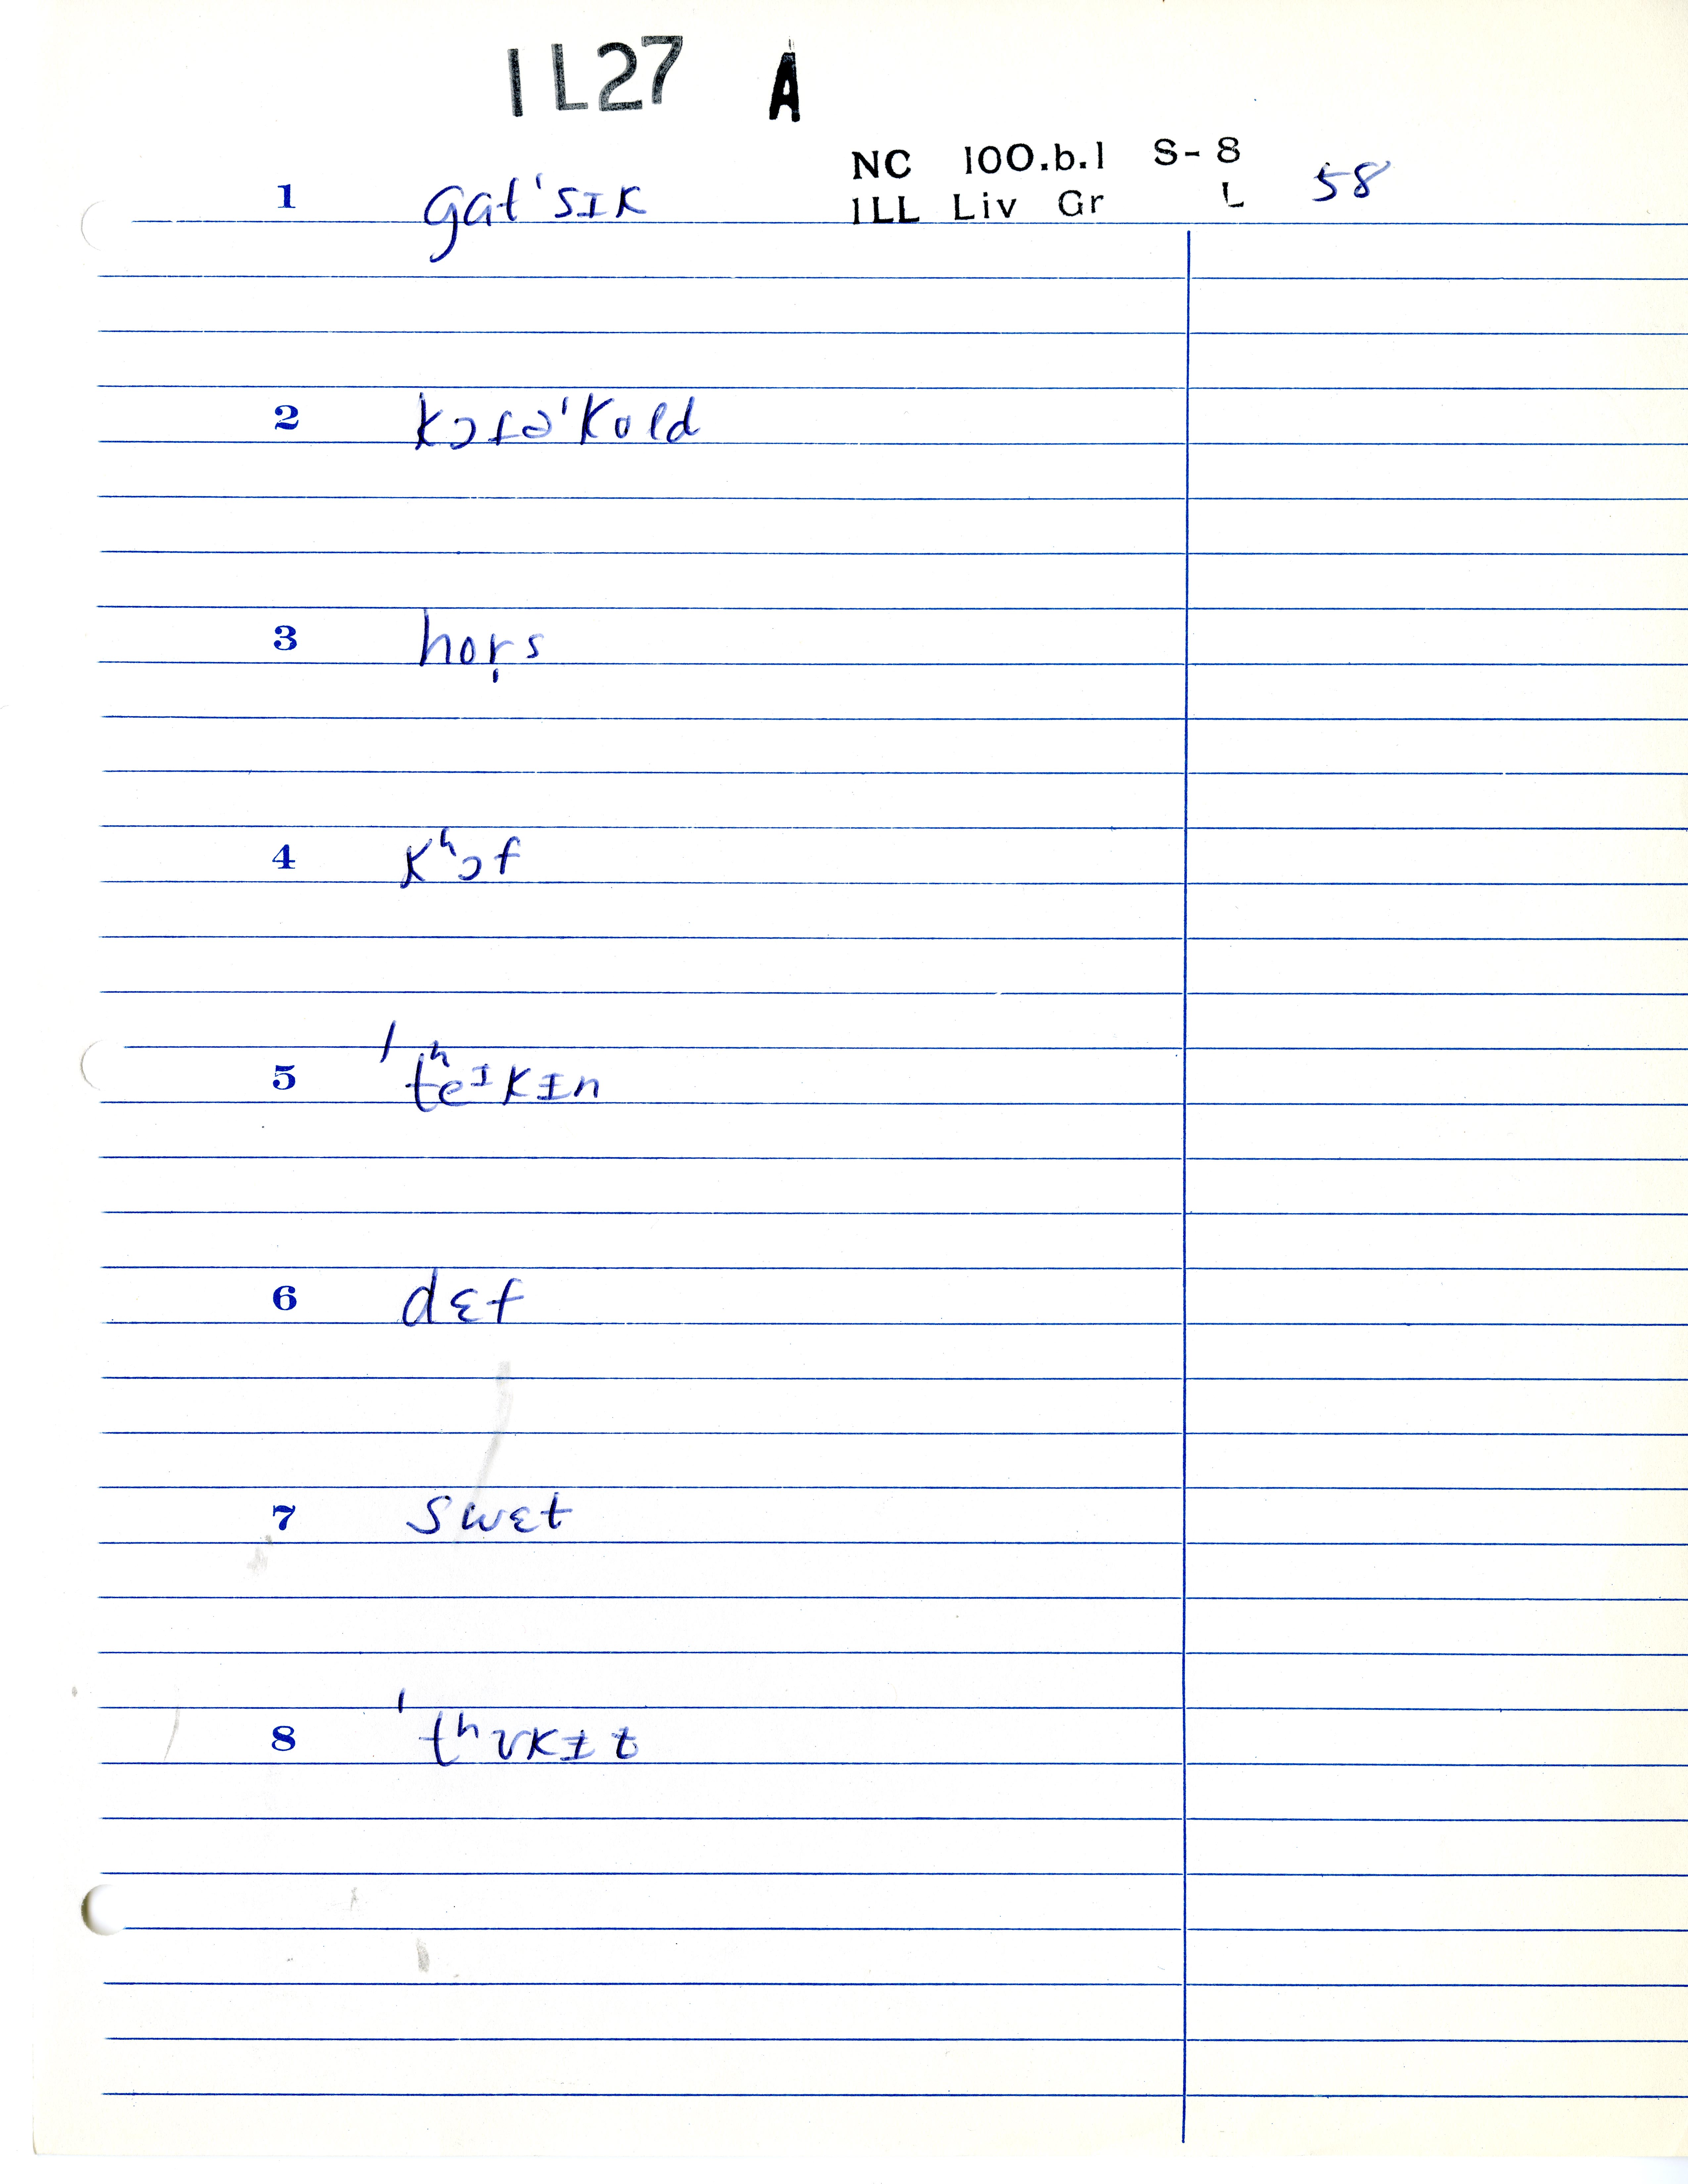 1L27 A
NC 100.b.1 S-8
ILL Liv Gr L 58
1 gatˈsɪk
2 kɔɾəˈkold
3 hor̩s
4 kʰɔf
5 ˈtʰeᶦkɪn
6 dɛf
7 swɛt
8 ˈtʰʊkɪt